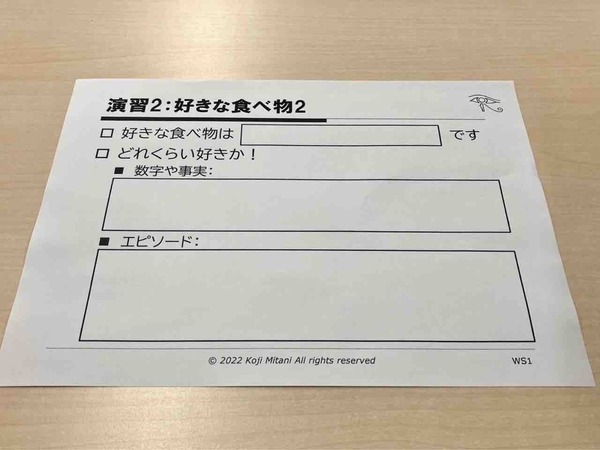 演習2：好きな食べ物2
□ 好きな食べ物は です
□ どれくらい好きか！
■ 数字や事実：
■ エピソード：
© 2022 Koji Mitani All rights reserved
WS1